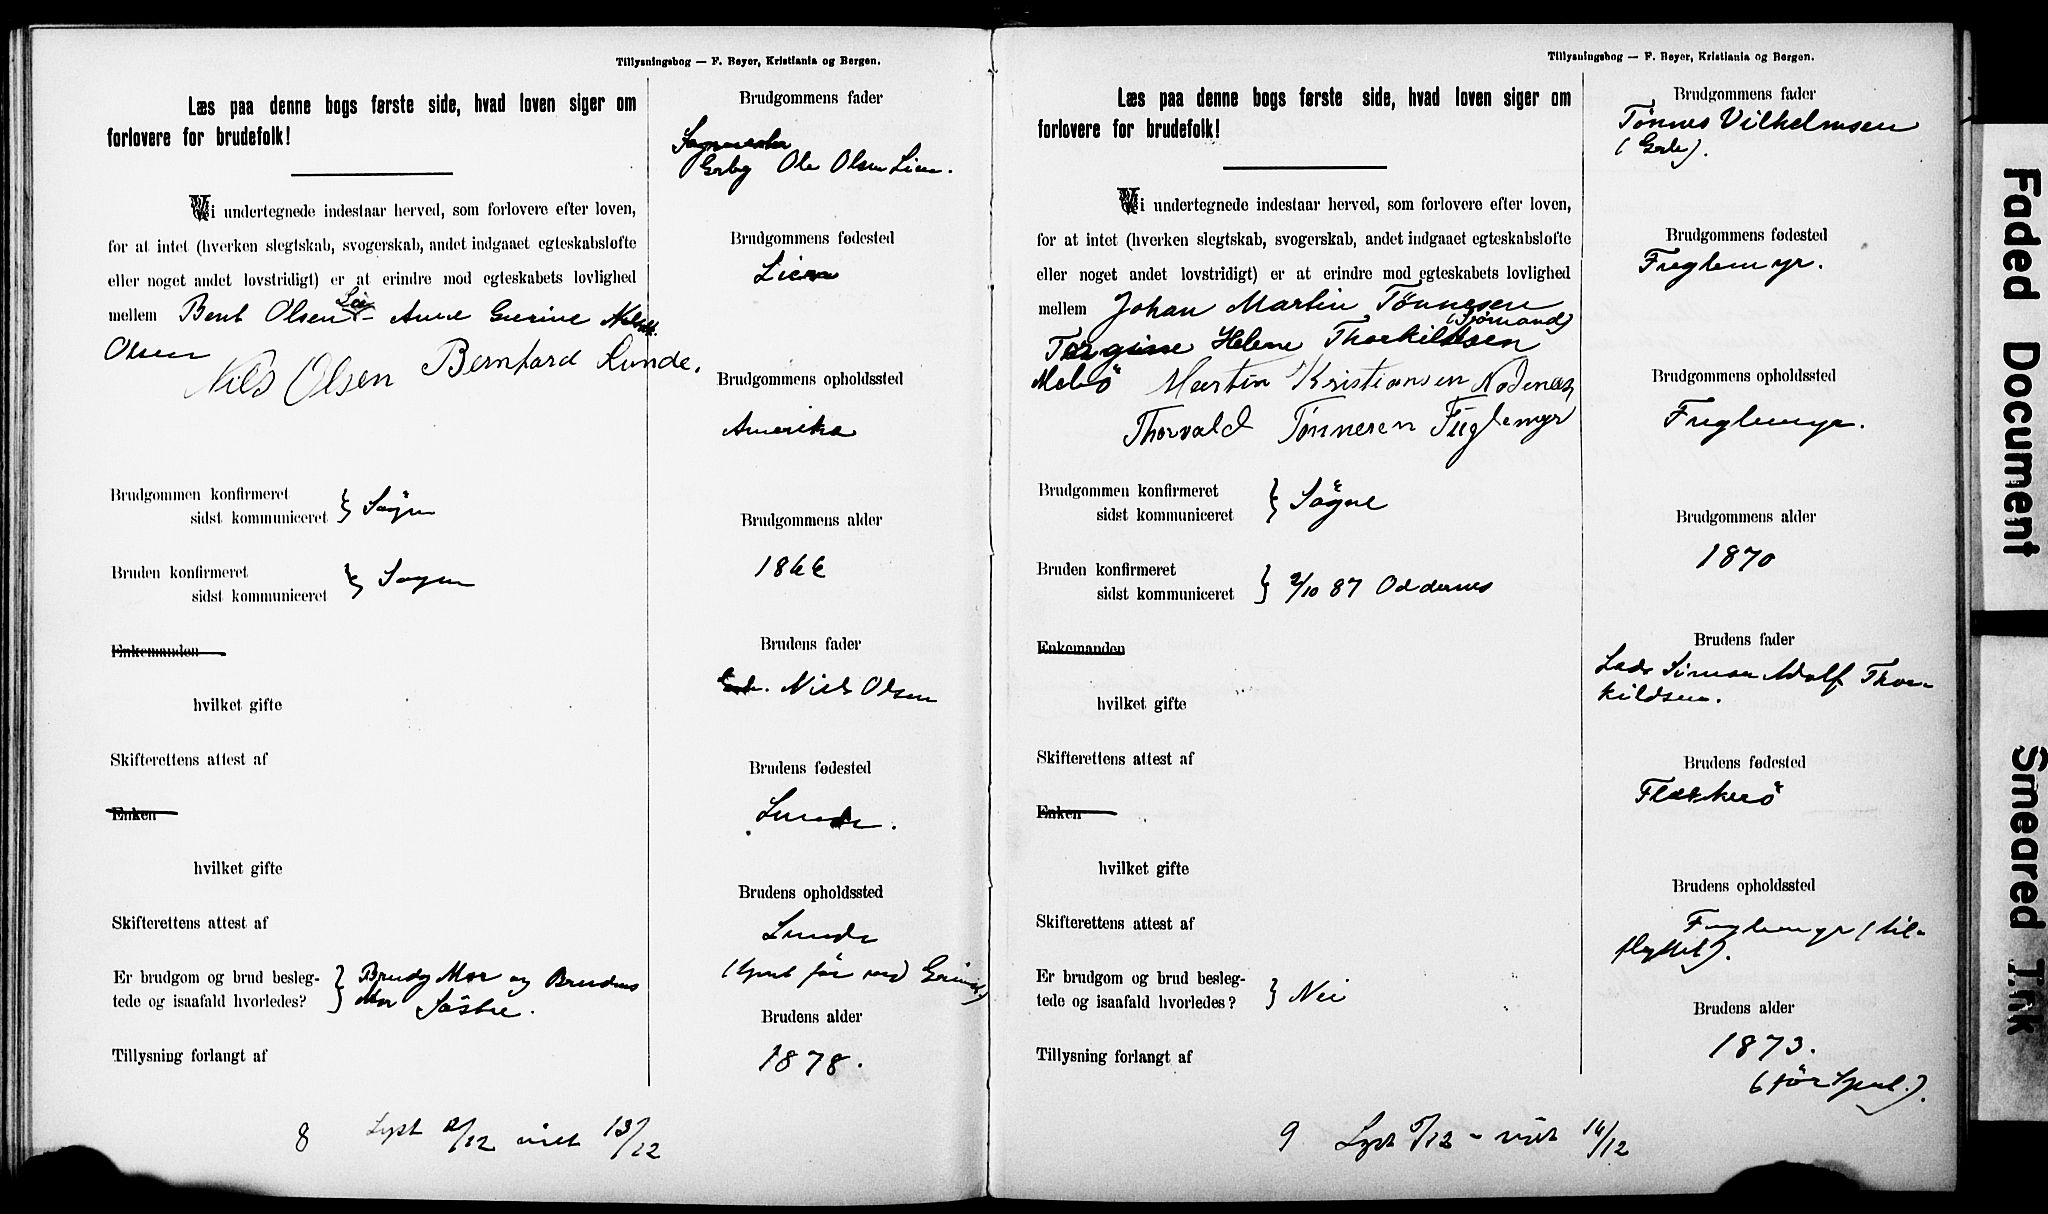 Tillysningsbog — F. Beyer, Kristiania og Bergen.
Læs paa denne bogs første side, hvad loven siger om
forlovere for brudefolk!
Vi undertegnede indestaar herved, som forlovere efter loven,
for at intet (hverken slegtskab, svogerskab, andet indgaaet egteskabsløfte
eller noget andet lovstridigt) er at erindre mod egteskabets lovlighed
mellem Bent Olsen Lie - Anne Gurine
Olsen
Nils Olsen Bernhard Lunde.
Brudgommen konfirmeret
sidst kommuniceret } Søgne
Bruden konfirmeret
sidst kommuniceret } Søgne
Enkemanden
hvilket gifte
Skifterettens attest af
Enken
hvilket gifte
Skifterettens attest af
Er brudgom og brud besleg-
tede og isaafald hvorledes? } Brudg Mor og Brudens
Mor Søstre.
Tillysning forlangt af
Brudgommens fader
Gbrg Ole Olsen Lien.
Brudgommens fødested
Lien
Brudgommens opholdssted
Amerika
Brudgommens alder
1866
Brudens fader
Niels Olsen
Brudens fødested
Lunde.
Brudens opholdssted
Lunde
Brudens alder
1878.
8 Lyst /12 viet 13/12
Tillysningsbog — F. Beyer, Kristiania og Bergen.
Læs paa denne bogs første side, hvad loven siger om
forlovere for brudefolk!
Vi undertegnede indestaar herved, som forlovere efter loven,
for at intet (hverken slegtskab, svogerskab, andet indgaaet egteskabsløfte
eller noget andet lovstridigt) er at erindre mod egteskabets lovlighed
mellem Johan Martin Tønnesen
(Sømand)
Torgine Helene Thorkildsen
Martin Kristiansen Nodenæs
Thorvald Tønnesen Fuglemyr
Brudgommen konfirmeret
sidst kommuniceret } Søgne
Bruden konfirmeret
sidst kommuniceret } 2/10 87 Oddernes
Enkemanden
hvilket gifte
Skifterettens attest af
Enken
hvilket gifte
Skifterettens attest af
Er brudgom og brud besleg-
tede og isaafald hvorledes? } Nei
Tillysning forlangt af
Brudgommens fader
Tønnes Vilhelmsen
Brudgommens fødested
Fuglemyr.
Brudgommens opholdssted
Fuglemyr.
Brudgommens alder
1870
Brudens fader
Lods Simon Adolf Thor-
kildsen.
Brudens fødested
Flekkerö
Brudens opholdssted
Fuglemyr (til-
flyttet).
Brudens alder
1873.
9 Lyst 5/12 - viet 14/12
Faded Document
Smeared Ink